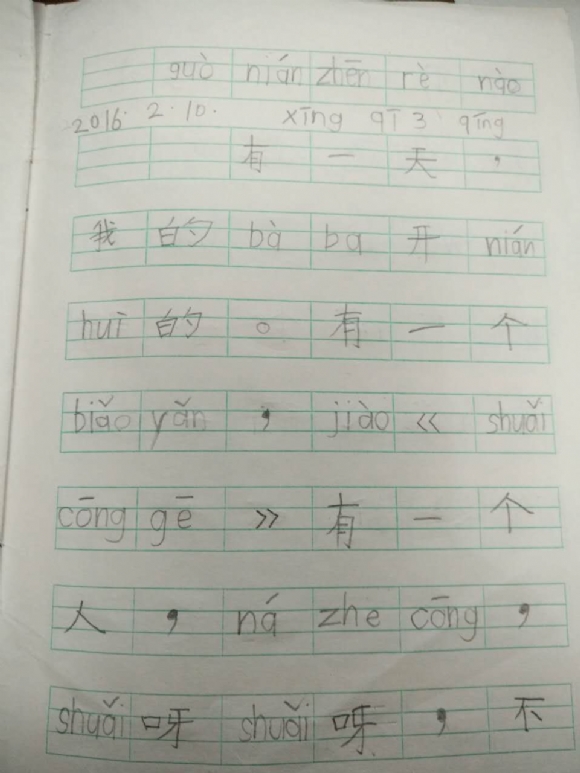 guò nián zhēn rè nào
2016. 2. 10. xīng qī 3 qíng
有一天，
我的bà ba开nián
huì的。有一个
biǎo yǎn，jiào《shuǎi
cōng gē》有一个
人，ná zhe cōng，
shuǎi呀shuǎi呀，不